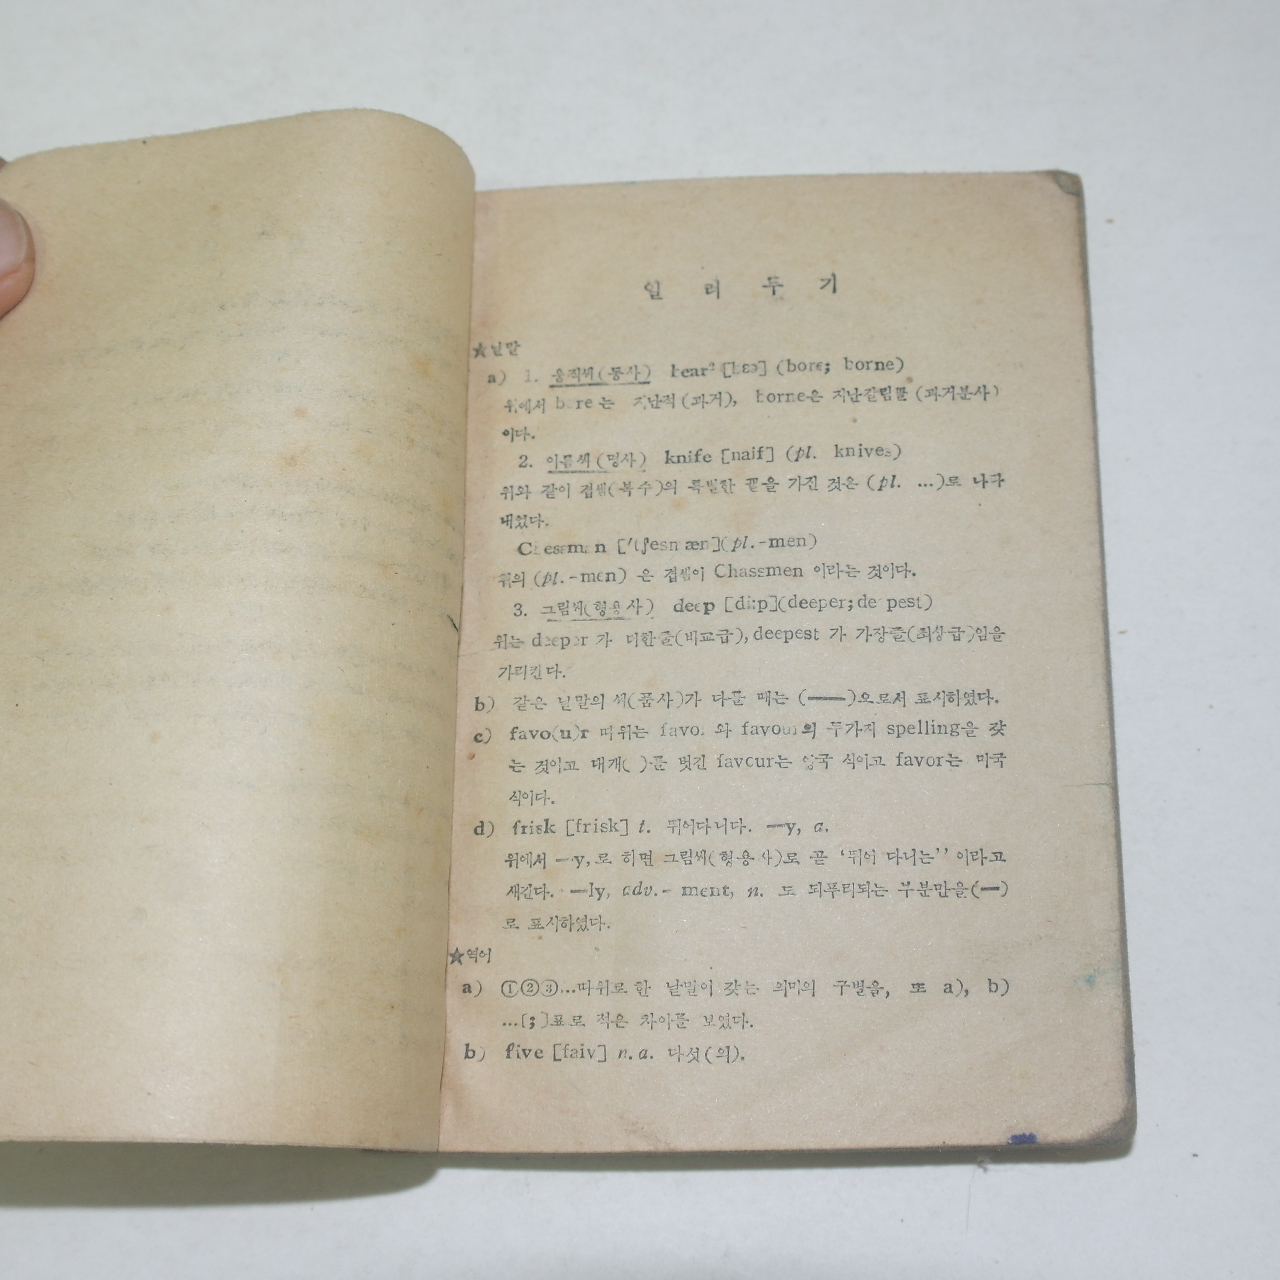 일 러 두 기
★낱말
a) 1. 움직씨(동사) bear² [bɛə] (bore; borne)
위에서 bore 는 지난적(과거), borne은 지난갈림꼴(과거분사)
이다.
2. 이름씨(명사) knife [naif] (pl. knives)
위와 같이 겹셈(복수)의 특별한 꼴을 가진 것은 (pl. ...)로 나구
내었다.
Chessman ['tʃesnæn](pl.-men)
위의 (pl.-men) 은 겹셈이 Chassmen 이라는 것이다.
3. 그림씨(형용사) deep [di:p](deeper;deepest)
위는 deeper 가 더한줄(비교급), deepest 가 가장줄(최상급)임을
가리킨다.
b) 같은 낱말의 씨(품사)가 다를 때는 (——)으로서 표시하였다.
c) favo(u)r 따위는 favor 와 favour의 두가지 spelling을 갖
는 것이고 대개( )를 벗긴 favour는 영국 식이고 favor는 미국
식이다.
d) frisk [frisk] t. 뛰어다니다. —y, a.
위에서 —y,로 히면 그림씨(형용사)로 곧 ‘뛰어 다니는’’ 이라고
새긴다. —ly, adv.- ment, n. 도 되푸리되는 부분만을(—)
로 표시하였다.
★역어
a) ①②③...따위로 한 낱말이 갖는 의미의 구별을, 또 a), b)
...[;]표로 적은 차이를 보였다.
b) five [faiv] n. a. 다섯(의).